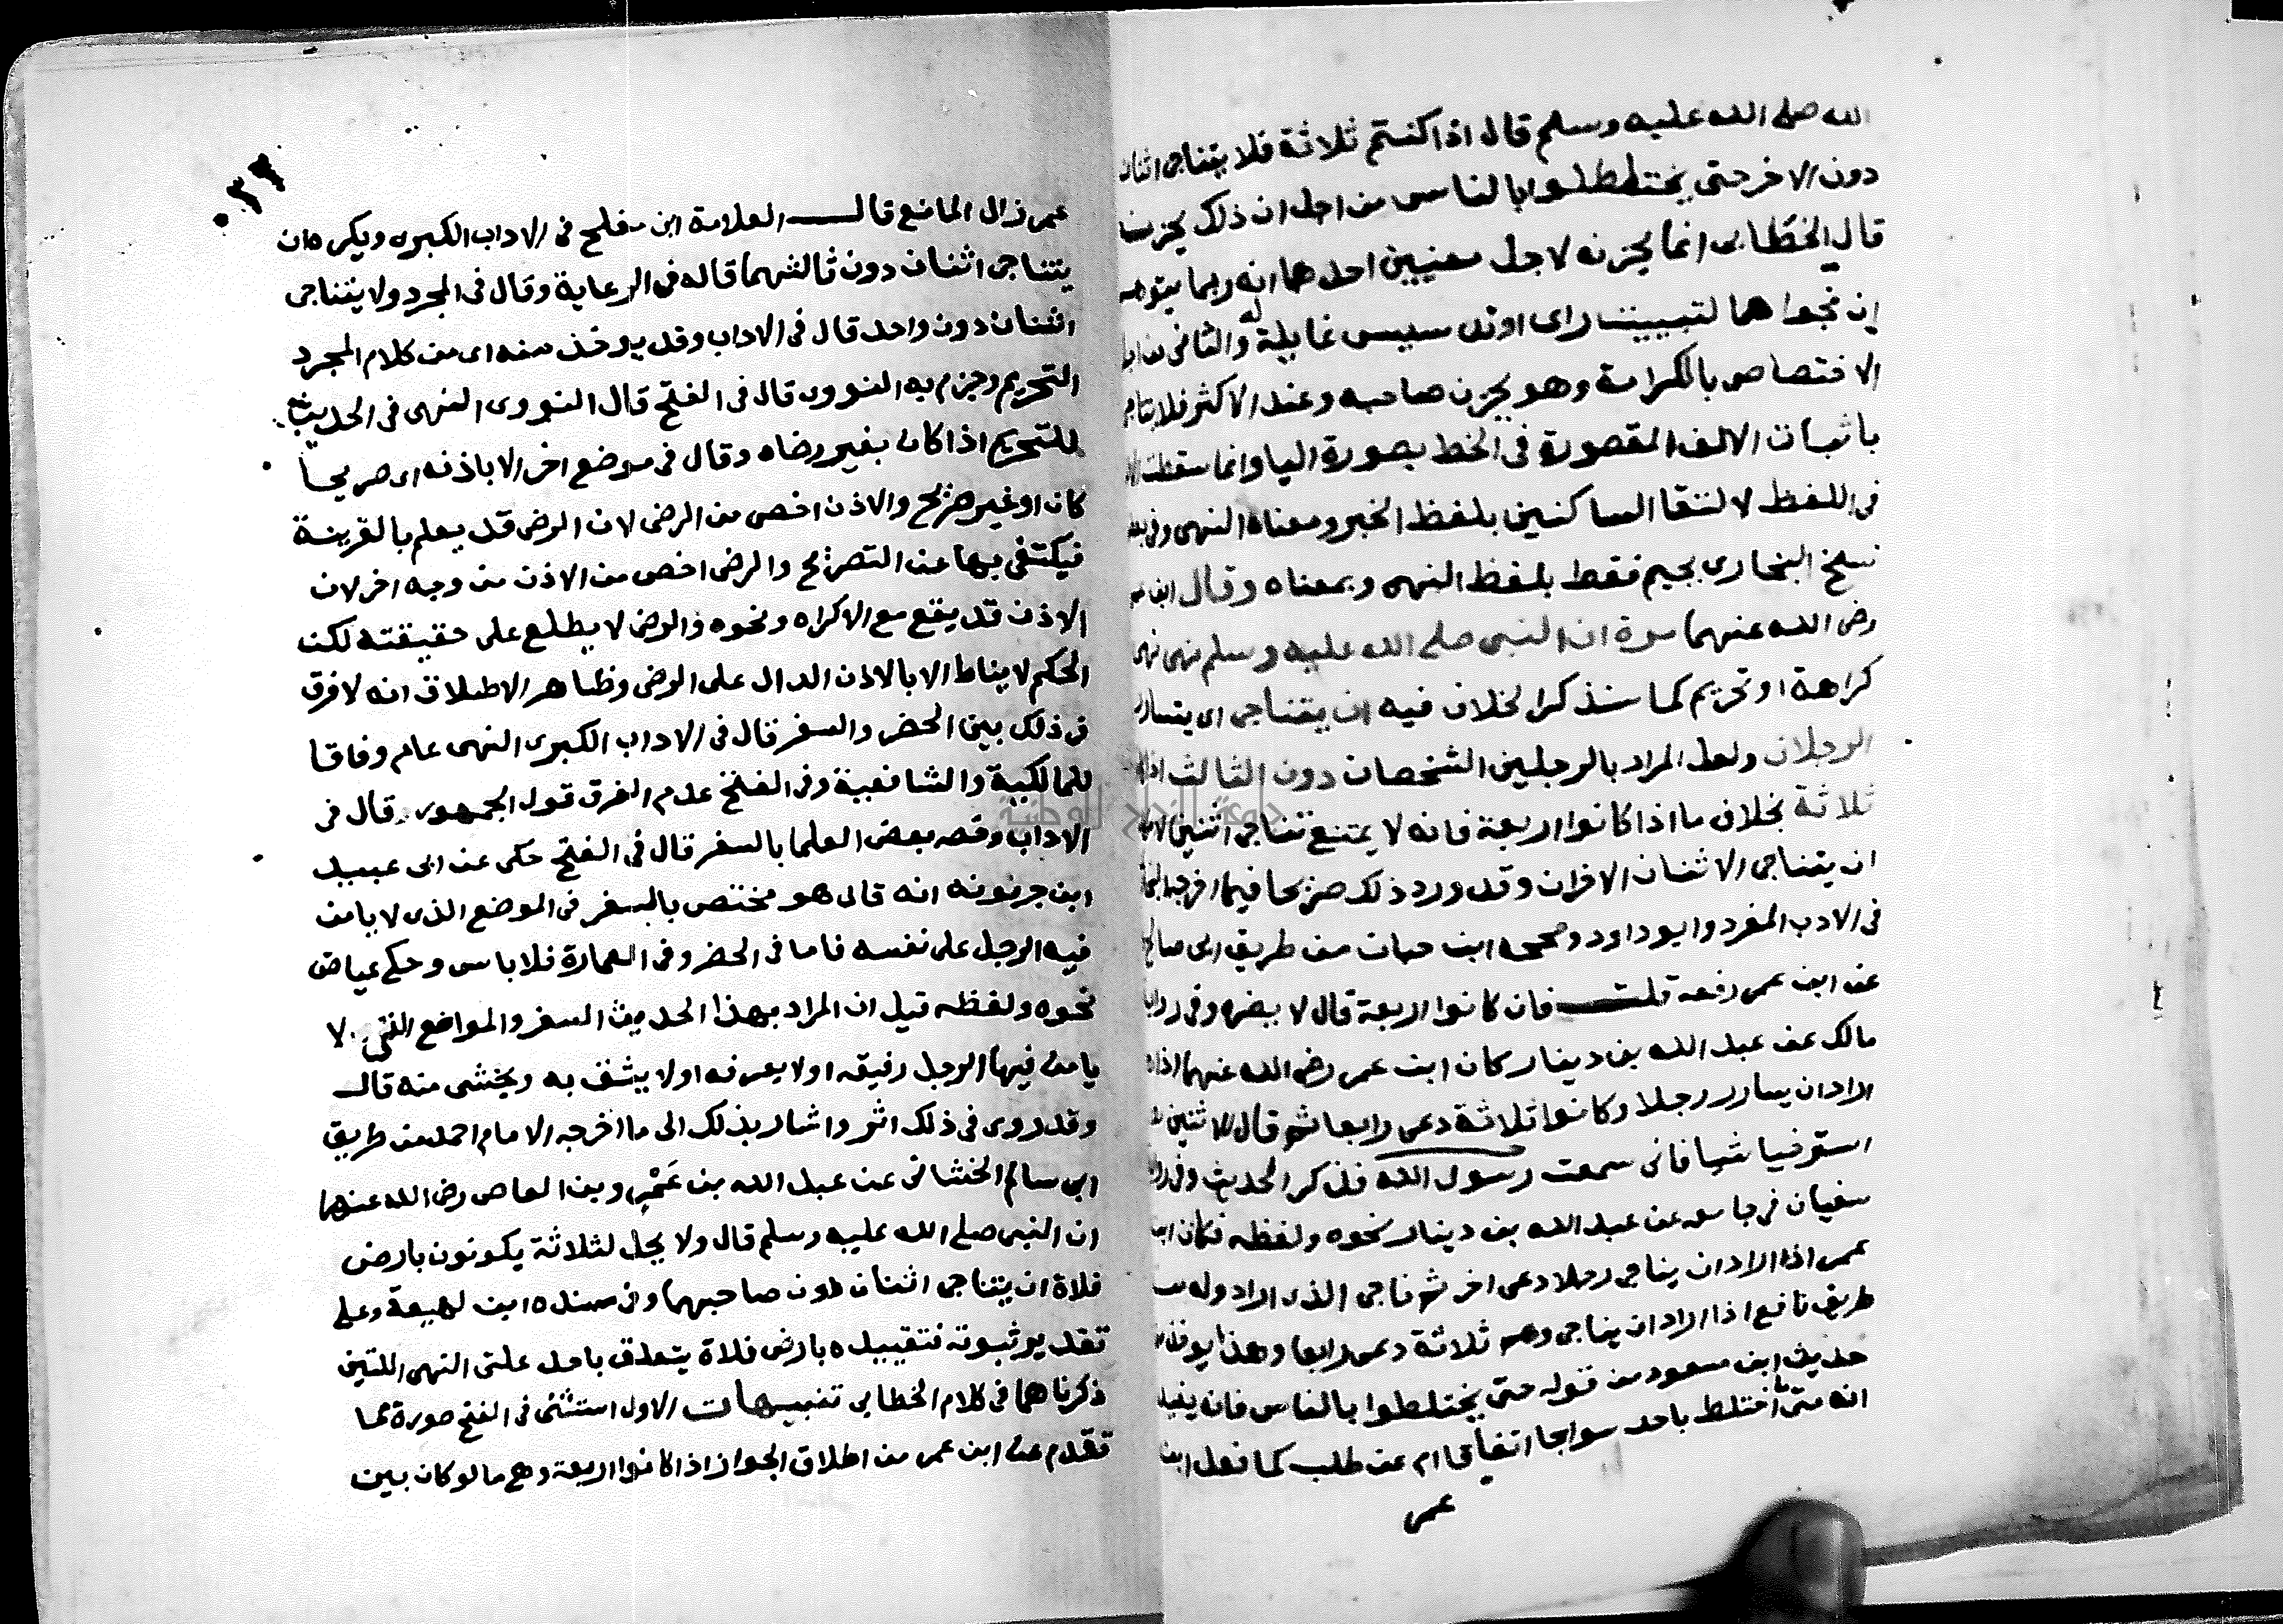 الله صلى الله عليه وسلم قال اذا كنتم ثلاثة فلا يتناجى اثنان
دون الاخر حتى يختلطوا بالناس من اجل ان ذلك يحزنه
قال الخطابى انما يحزنه لاجل معنيين احدهما انه ربما يتوهم
ان نجواهما لتبييت راى او تدسيس غايلة له والثانى من اجل
الاختصاص بالكرامة وهو يحزن صاحبه وعند الاكثر فلا يتناجى
باثبات الالف المقصورة فى الخط بصورة اليا وانما سقطت
فى اللفظ لالتقا الساكنين بلفظ الخبر ومعناه النهى وفى بعض
نسخ البخارى بجيم فقط بلفظ النهى وبمعناه وقال ابن عمر
رضى الله عنهما مرة ان النبى صلى الله عليه وسلم نهى نهى
كراهة او تحريم كما سنذكر الخلاف فيه ان يتناجى اى يتسارر
الرجلان ولعل المراد بالرجلين الشخصان دون الثالث اذا
ثلاثة بخلاف ما اذا كانوا اربعة فانه لا يمتنع تناجى اثنين
ان يتناجى الاثنان الاخران وقد ورد ذلك صريحا فيما اخرجه
فى الادب المفرد وابو داود وصححه ابن حبان من طريق ابى صالح
عن ابن عمر رفعه قلت فان كانوا اربعة قال لا يضره وفى رواية
مالك عن عبد الله بن دينار كان ابن عمر رضى الله عنهما اذا
اراد ان يسارر رجلا وكانوا ثلاثة دعى رابعا ثم قال للاثنين
استرخيا شيا فانى سمعت رسول الله فذكر الحديث وفى
سفيان فى جامعه عن عبد الله بن دينار نحوه ولفظه فكان ابن
عمر اذا اراد ان يناجى رجلا دعى اخر ثم ناجى الذى اراد وله من
طريق نافع اذا اراد ان يناجى وهم ثلاثة دعى رابعا وهذا
حديث ابن مسعود من قوله حتى يختلطوا بالناس فانه يفيد
انه متى اختلط باحد سوا جا اتفاقا ام عن طلب كما فعل ابن
عمر
عمر زال المانع قال العلامة ابن مفلح فى الاداب الكبرى ويكره ان
يتناجى اثنان دون ثالثهما قاله فى الرعاية وقال فى المجرد ولا يتناجى
اثنان دون واحد قال فى الاداب وقد يوخذ منه اى من كلام المجرد
التحريم وجزم به النووى قال فى الفتح قال النووى النهى فى الحديث
للتحريم اذا كان بغير رضاه وقال فى موضع اخر الا باذنه اى صريحا
كان او غير صريح والاذن اخص من الرضى لان الرضى قد يعلم بالقرينة
فيكتفى بها عن التصريح والرضى اخص من الاذن من وجه اخر لان
الاذن قد يقع مع الاكراه ونحوه والرضى لا يطلع على حقيقته لكن
الحكم لا يناط الا بالاذن الدال على الرضى وظاهر الاطلاق انه لا فرق
فى ذلك بين الحضر والسفر قال فى الاداب الكبرى النهى عام وفاقا
للمالكية والشافعية وفى الفتح عدم الفرق قول الجمهور قال فى
الاداب وخصه بعض العلما بالسفر قال فى الفتح حكى عن ابى عبيد
ابن جربونه انه قال هو مختص بالسفر فى الموضع الذى لا يامن
فيه الرجل على نفسه فاما فى الحضر وفى العمارة فلا باس وحكى عياض
نحوه ولفظه قيل ان المراد بهذا الحديث السفر والمواضع التى لا
يامن فيها الرجل رفيقه او لا يعرفه او لا يثق به ويخشى منه قال
وقد روى فى ذلك اثر واشار بذلك الى ما اخرجه الامام احمد من طريق
ابى سالم الخشانى عن عبد الله بن عمرو بن العاص رضى الله عنهما
ان النبى صلى الله عليه وسلم قال ولا يحل لثلاثة يكونون بارض
فلاة ان يتناجى اثنان دون صاحبهما وفى سنده ابن لهيعة وعلى
تقدير ثبوته فتقييده بارض فلاة يتعلق باحد علتى النهى اللتين
ذكرناهما فى كلام الخطابى تنبيهات الاول استثنى فى الفتح صورة مما
تقدم عن ابن عمر من اطلاق الجواز اذا كانوا اربعة وهى ما لو كان بين
جامعة النجاح الوطنية